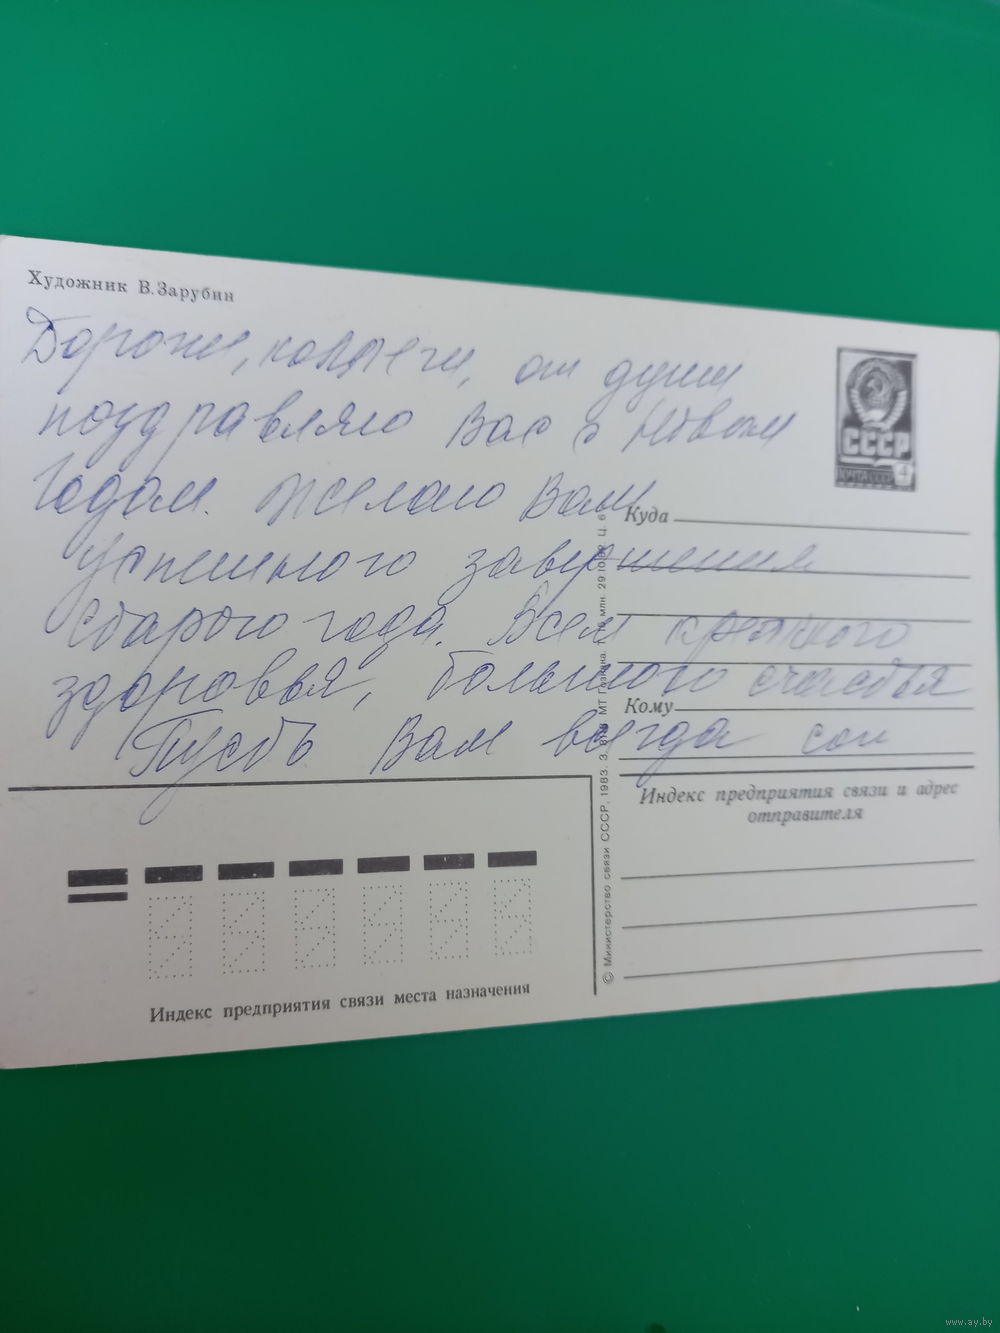 Художник В. Зарубин
Дорогие, коллеги, от души
поздравляю Вас с Новым
Годом. Желаю Вам
успешного завершения
старого года. Всем крепкого
здоровья, большого счастья
Пусть Вам всегда
СССР
ПОЧТА СССР
4
Куда
Кому
Индекс предприятия связи и адрес
отправителя
© Министерство связи СССР, 1983. З.
Индекс предприятия связи места назначения
www.ay.by